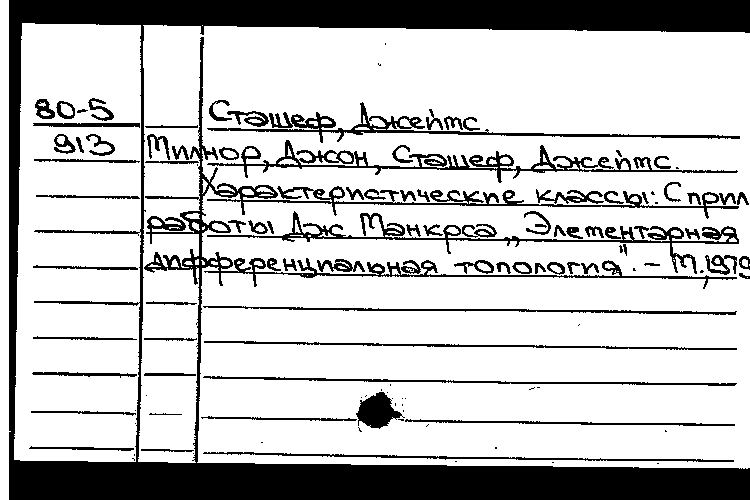 80-5 Сташеф, Джеймс.
913 Милнор, Джон, Сташеф, Джеймс.
Характеристические классы: С прил.
работы Дж. Манкрса „Элементарная
дифференциальная топология". - М., 1979